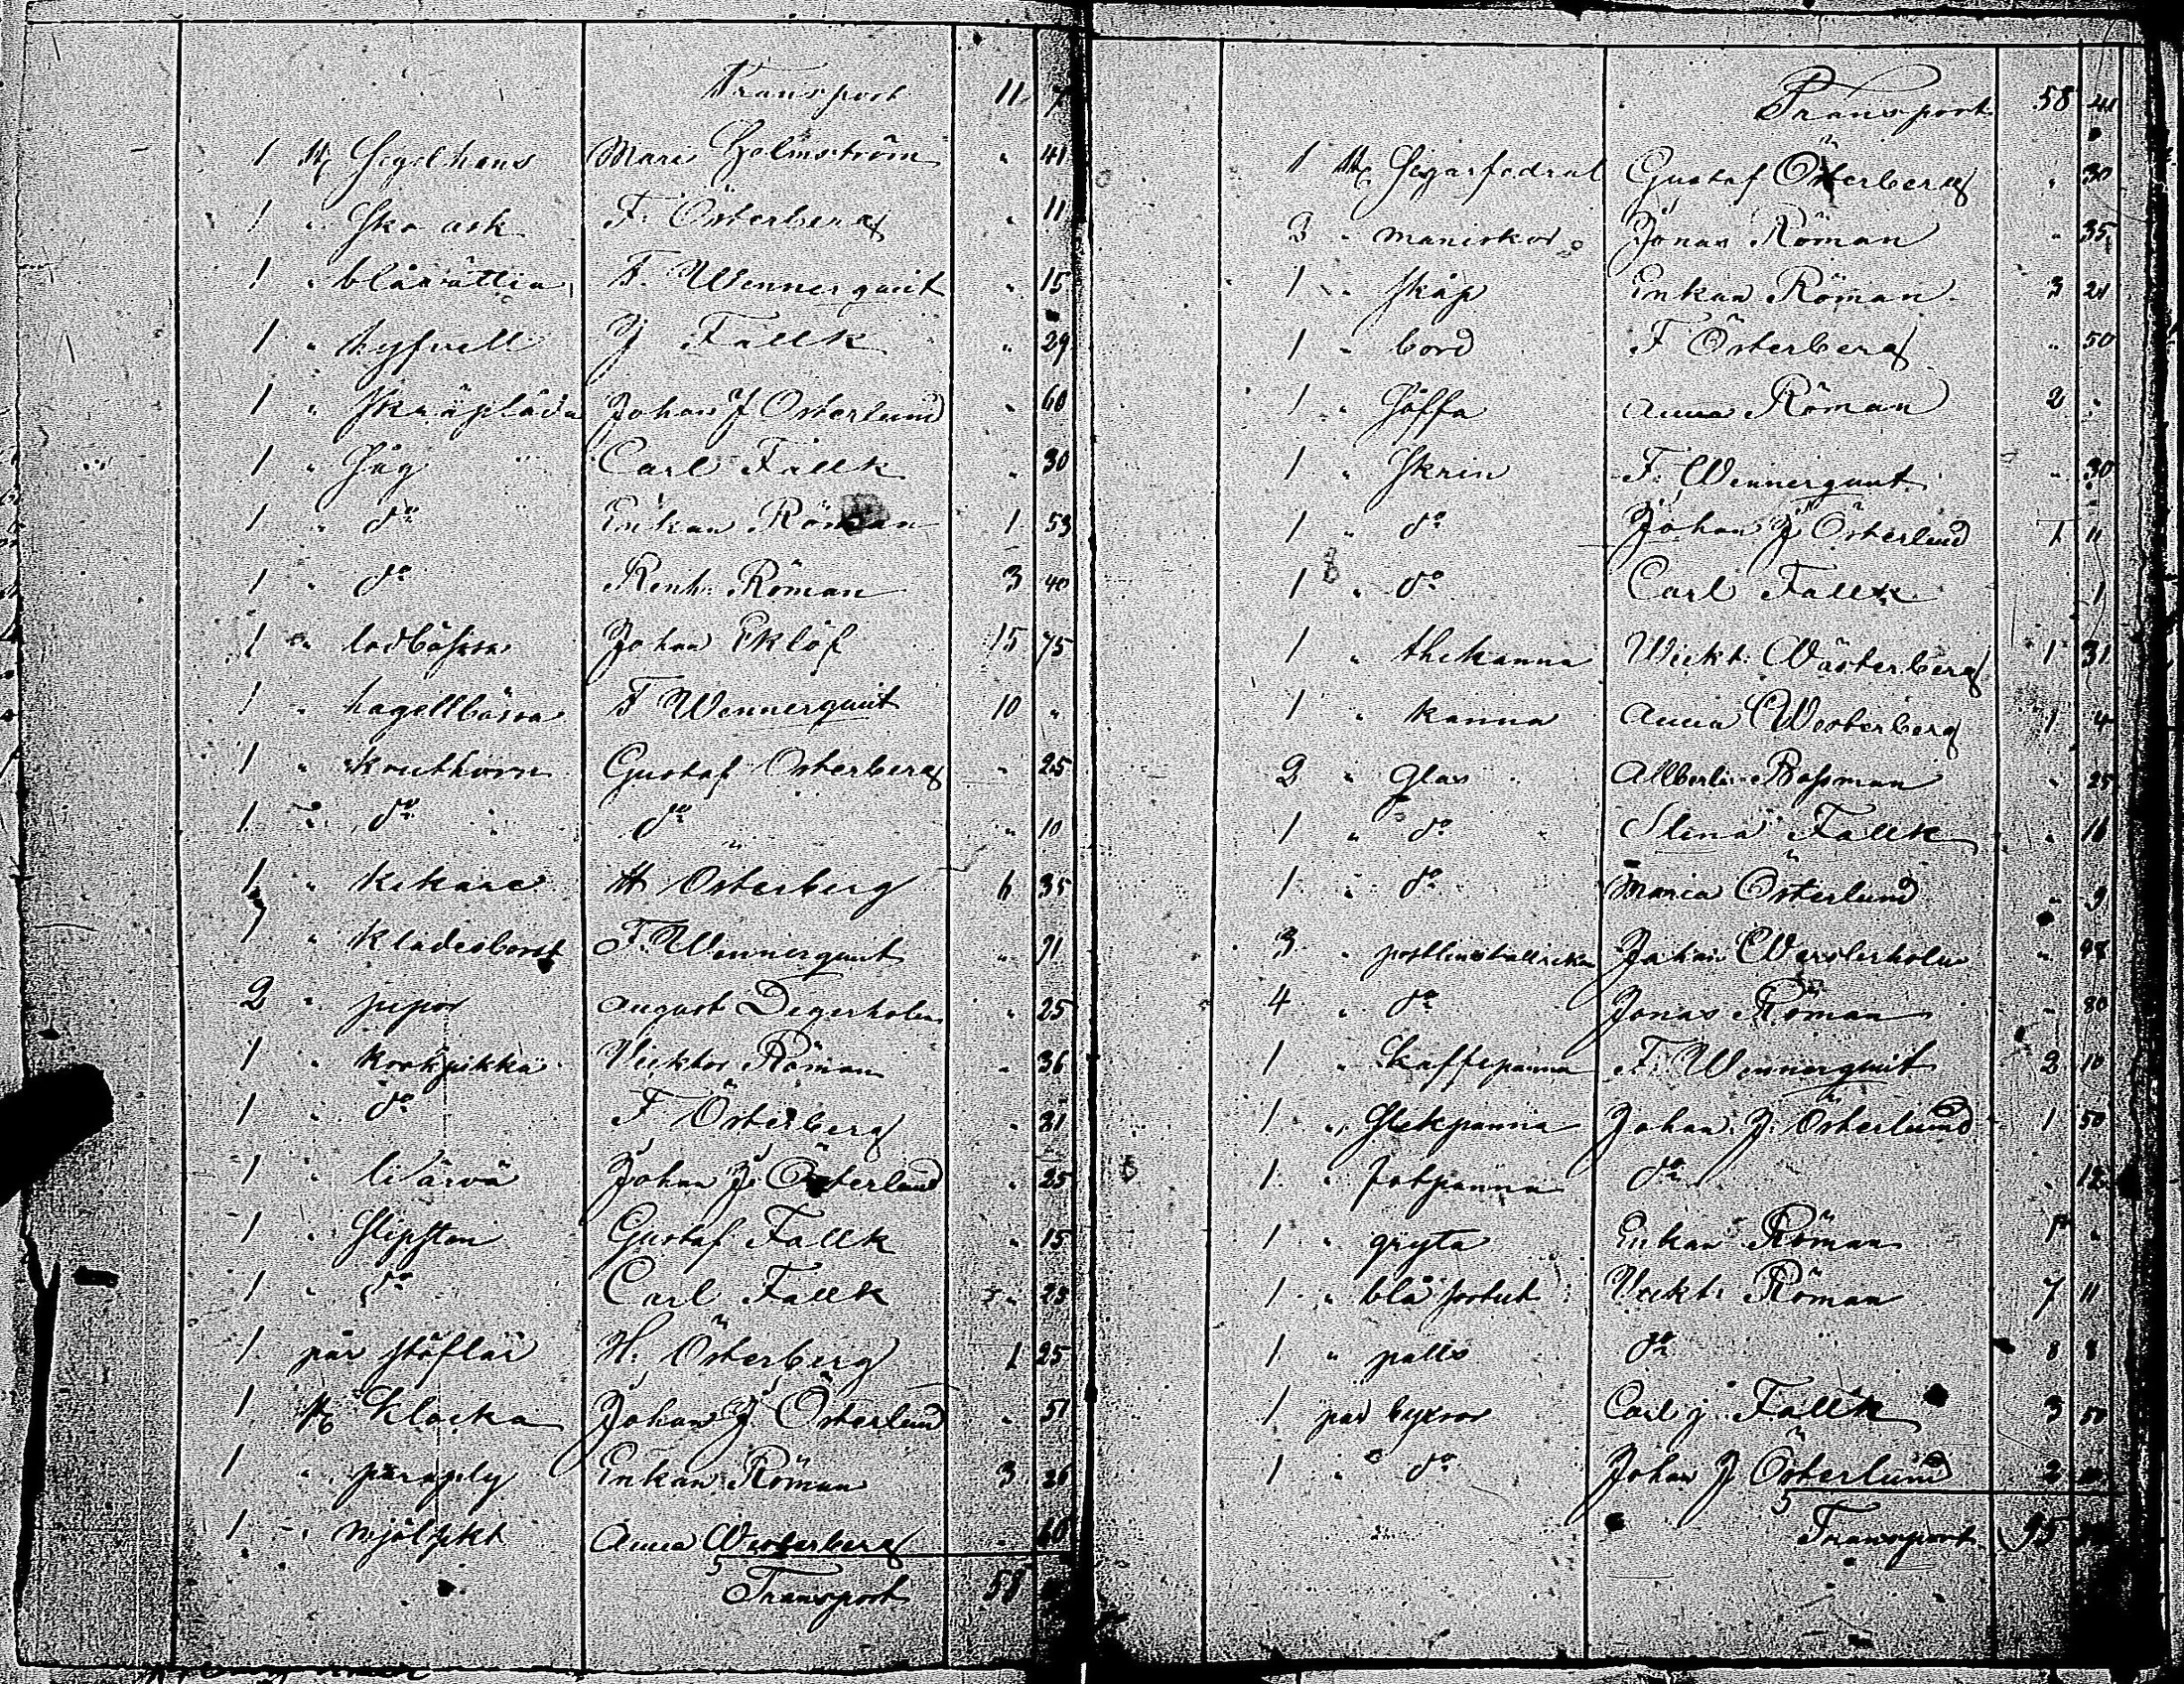 Transport 11
1 st Segelhans Mari Holmström " 41
1 " Sko ask F. Österberg " 11
1 " F. Wennerquist " 15
1 " hyfvell J Fallk " 29
1 " Skräplåda Johan J Österlund " 60
1 " Såg Carl Fallk " 30
1 " do Enkan Röman 1 53
1 " do Renh. Röman 3 40
1 " lodbössa Johan Eklöf 15 75
1 " hagellbössa F Wennerquist 10 "
1 " kruthorn Gustaf Österberg " 25
1 " do do " 10
1 " kikare H Österberg 6 35
1 " kladesborst F. Wennerquist "
2 " pipor August Degerholm " 25
1 " Vicktor Röman " 36
1 " do F Österberg " 21
1 " Johan J. Österlund " 25
1 " Slipsten Gustaf Fallk " 15
1 " do Carl Fallk " 25
1 par stöflar H. Österberg 1 25
1 st Klocka Johan J Österlund " 51
1 " paraply Enkan Röman 3 26
1 " Anna Westerberg " 60
Transport 58
Transport 58 41
1 st Sigarfodral Gustaf Österberg " 30
3 " maniskor Jonas Röman " 35
1 " skåp Enkan Röman 3 21
1 " bord F Österberg " 50
1 " Söffa Anna Röman 2 "
1 " Skrin F. Wennerquist " 30
1 " do Johan J Österlund 1 11
1 " do Carl Fallk 1
1 " thekanna Wickt. Wästerberg 1 31
1 " kanna Anna Westerberg 1 4
2 " Glas " 25
1 " do Stina Fallk " 16
1 " do Maria Österlund " 9
3 " postlinstallrika Johan Westerholm " 48
4 " do Jonas Röman " 80
1 " Kaffepanna F. Wennerquist 2 10
1 " Stekpanna Johan J. Österlund 1 50
1 " do " 12
1 " gryta Enkan Röman 1 "
1 " blå sortut Vickt. Röman 7 11
1 " do 8 8
1 par byxor Carl j Fallk 3 50
1 " do Johan J Österlund 2
Transport 95